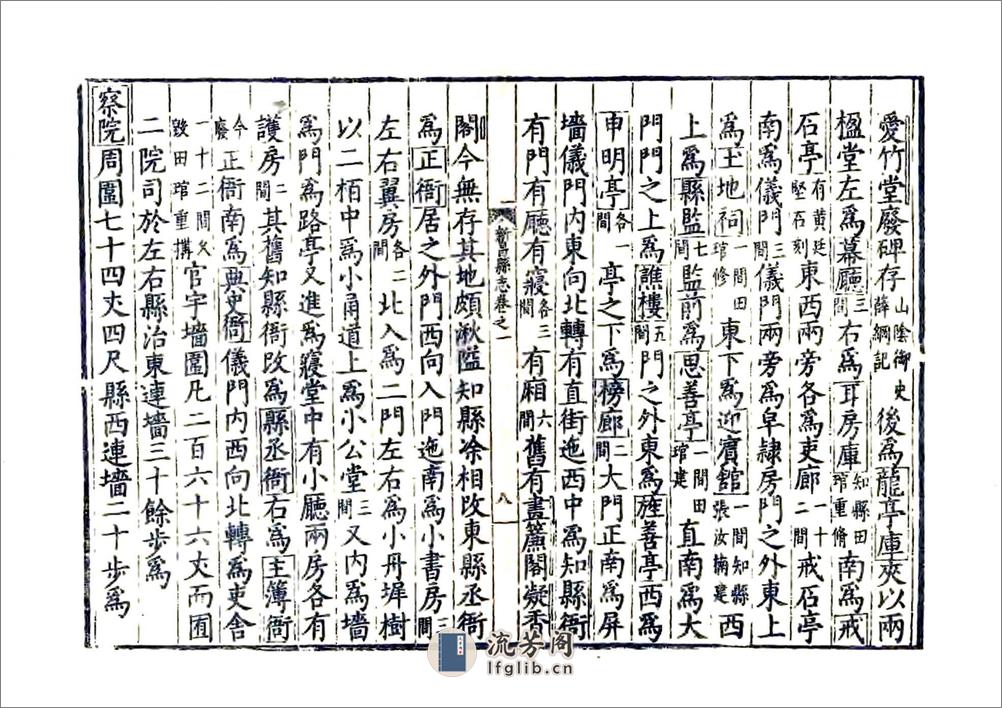 愛竹堂廢碑存山陰御史薛綱記後為龍亭庫夾以兩
楹堂左為幕廳三間右為耳房庫知縣田琯重脩南為戒
石亭有黃廷堅石刻東西兩旁各為吏廊一十二間戒石亭
南為儀門三間儀門兩旁為皁隸房門之外東上
為土地祠一間田琯修東下為迎賓館一間知縣張汝楠建西
上為縣監七間監前為思善亭一間田琯建直南為大
門門之上為譙樓五間門之外東為旌善亭西為
申明亭各一間亭之下為榜廊二間大門正南為屏
墻儀門內東向北轉有直街迤西中為知縣衙
有門有廳有寢各三間有廂六間舊有畫簾閣凝香
新昌縣志卷之一
八
閣今無存其地頗湫隘知縣涂相改東縣丞衙
為正衙居之外門西向入門迤南為小書房三間
左右翼房各二間北入為二門左右為小丹墀樹
以二栢中為小甬道上為小公堂三間又內為墻
為門為路亭又進為寢堂中有小廳兩房各有
護房二間其舊知縣衙改為縣丞衙右為主簿衙
今廢正衙南為典史衙儀門內西向北轉為吏舍
一十二間久毀田琯重搆官宇墻圍凡二百六十六丈而囿
二院司於左右縣治東連墻三十餘步為
察院周圍七十四丈四尺縣西連墻二十步為
流芳阁
lfglib.cn